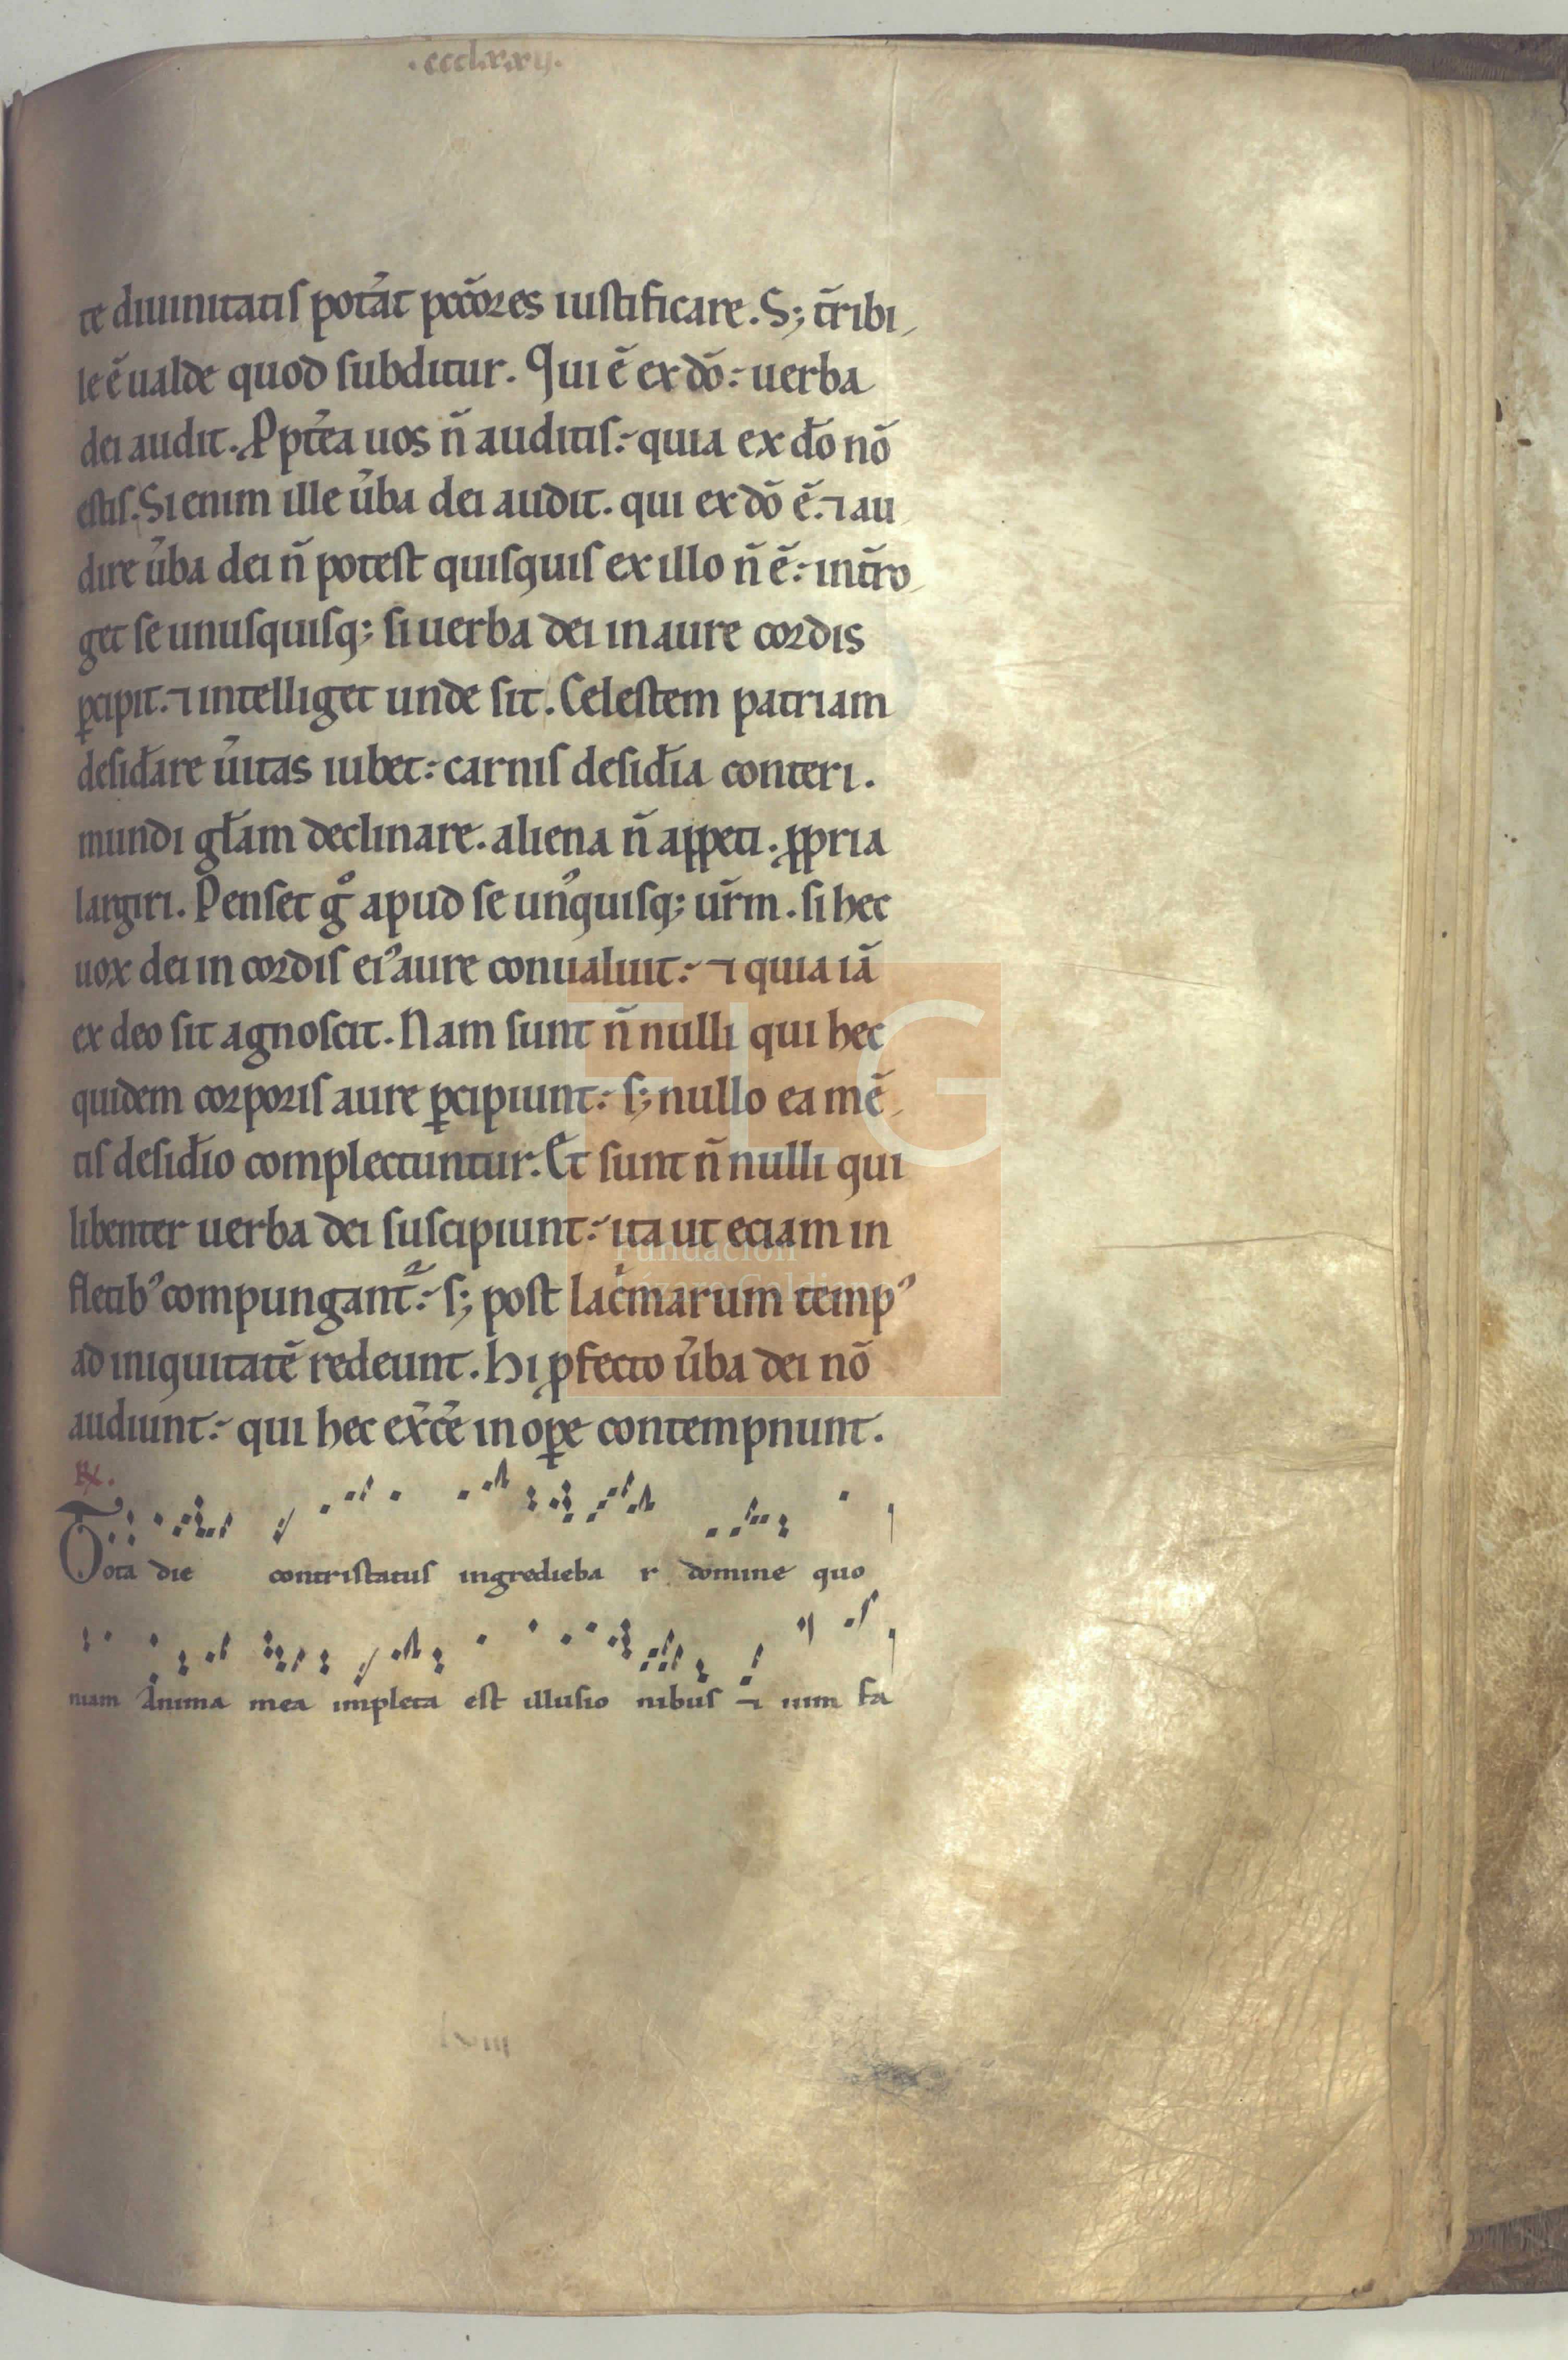 .ccclxxxij.
te diuinitatis potat̉ pcc̄ores iustificare. S; t̄ribi
le ē ualde quod subditur. Qui ē ex dō: uerba
dei audit. Ppt̉ea uos n̄ auditis: quia ex d̄o nō
estis. Si enim ille ủba dei audit. qui ex dō ē. ⁊ au
dire ủba dei n̄ potest quisquis ex illo n̄ ē: int̄ro
get se unusquisq; si uerba dei in aure cordis
ꝑcipit. ⁊ intelliget unde sit. Celestem patriam
desid̄are ủitas iubet: carnis desid̄ia conteri.
mundi gl̄am declinare. aliena n̄ appeti. ꝓpria
largiri. Penset gͦ apud se unꝰquisq; ur̄m. si hec
uox dei in cordis eiꝰ aure conualuit: ⁊ quia iā
ex deo sit agnoscit. Nam sunt n̄ nulli qui hec
quidem corporis aure ꝑcipiunt: s; nullo ea mē
tis desid̄io complectuntur. Et sunt n̄ nulli qui
libenter uerba dei suscipiunt: ita ut eciam in
fletibꝰ compungant᷑: s; post lac̉marum tempꝰ
ad iniquitatē redeunt. Hi ꝓfecto ủba dei nō
audiunt: qui hec ex̉c̉e in oꝑe contempnunt.
℞.
Tota die contristatus ingredieba r domine quo
niam anima mea impleta est illusio nibus ⁊ nun sa
FLG
Fundación
Lázaro Galdiano